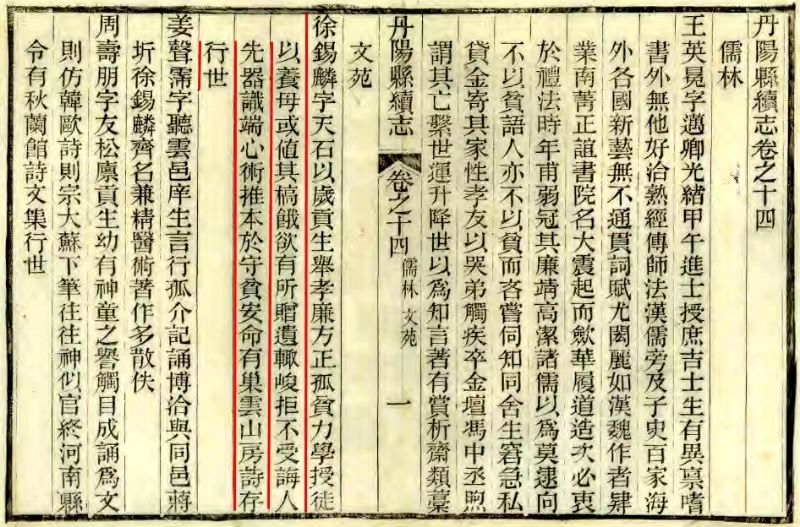 丹陽縣續志卷之十四
儒林
王英冕字邁卿光緒甲午進士授庶吉士生有異稟嗜
書外無他好治熟經傳師法漢儒旁及子史百家海
外各國新藝無不通貫詞賦尤閎麗如漢魏作者肄
業南菁正誼書院名大震起而歛華履道造次必衷
於禮法時年甫弱冠其廉靖高潔諸儒以為莫逮向
不以貧語人亦不以貧而吝嘗伺知同舍生窘急私
貸金寄其家性孝友以哭弟觸疾卒金壇馮中丞煦
謂其亡繫世運升降世以為知言著有賞析齋類藁
丹陽縣續志
卷之十四
儒林 文苑
一
文苑
徐錫麟字天石以歲貢生舉孝廉方正孤貧力學授徒
以養母或值其槁餓欲有所贈遺輒峻拒不受誨人
先器識端心術推本於守貧安命有巢雲山房詩存
行世
姜聲霈字聽雲邑庠生言行孤介記誦博洽與同邑蔣
圻徐錫麟齊名兼精醫術著作多散佚
周壽朋字友松廪貢生幼有神童之譽觸目成誦為文
則仿韓歐詩則宗大蘇下筆往往神似官終河南縣
令有秋蘭館詩文集行世